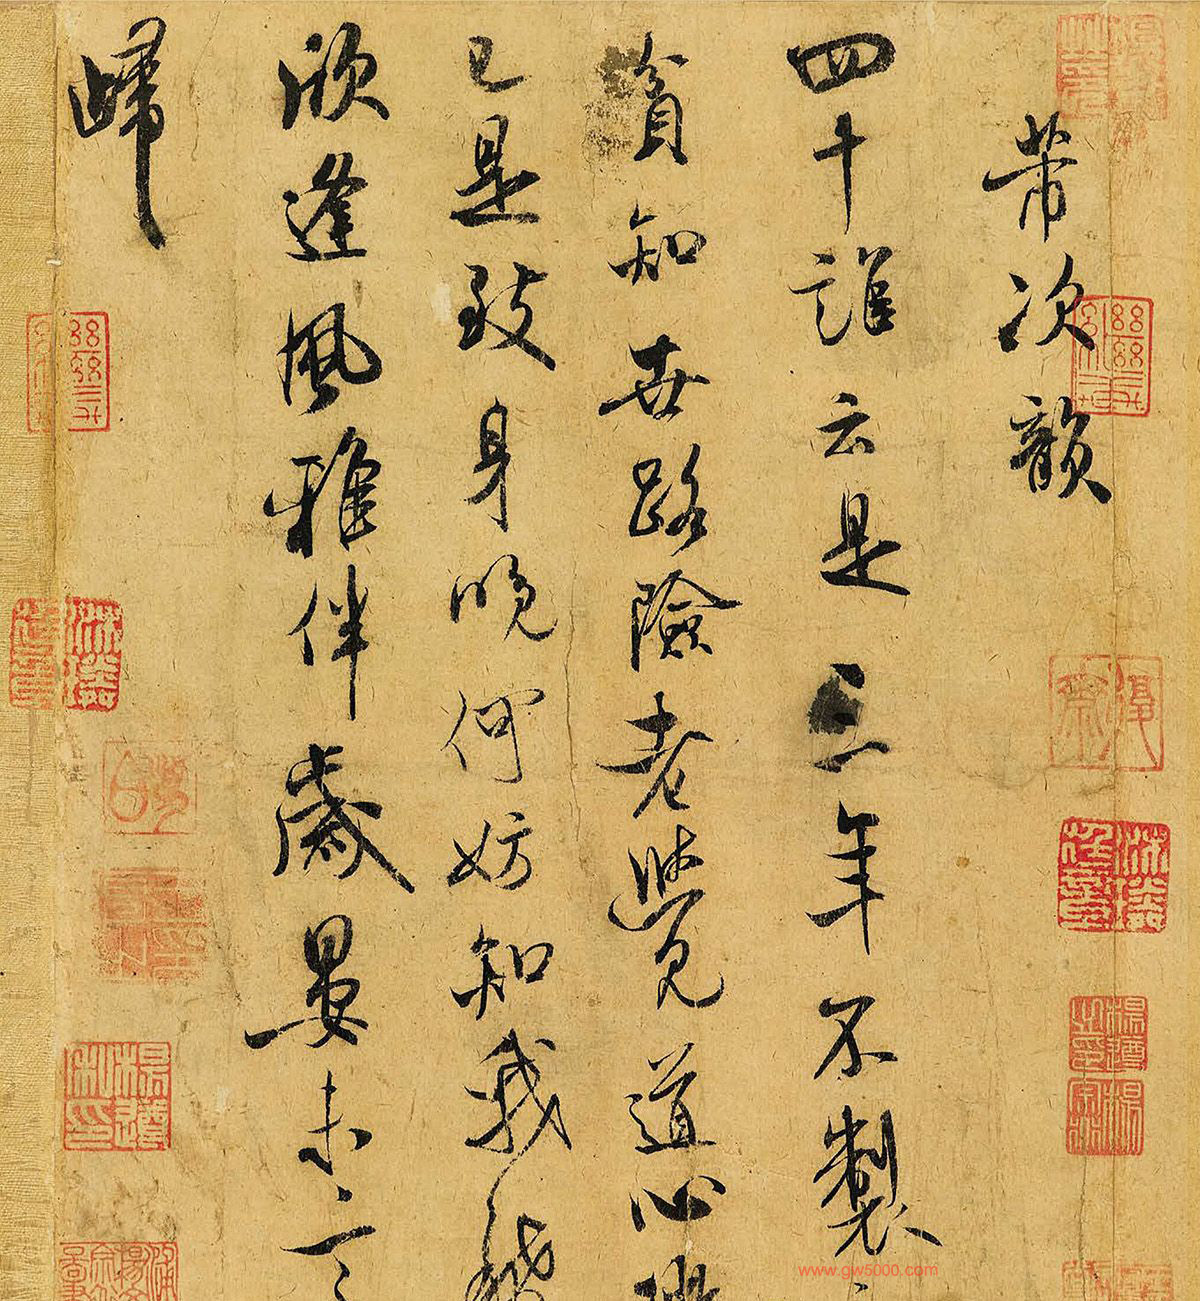 芾次韻
四十誰云是三年不製
貧知世路險老覺道心
已是致身晚何妨知我
欣逢風雅伴歲晏未言
歸
www.gw5000.com